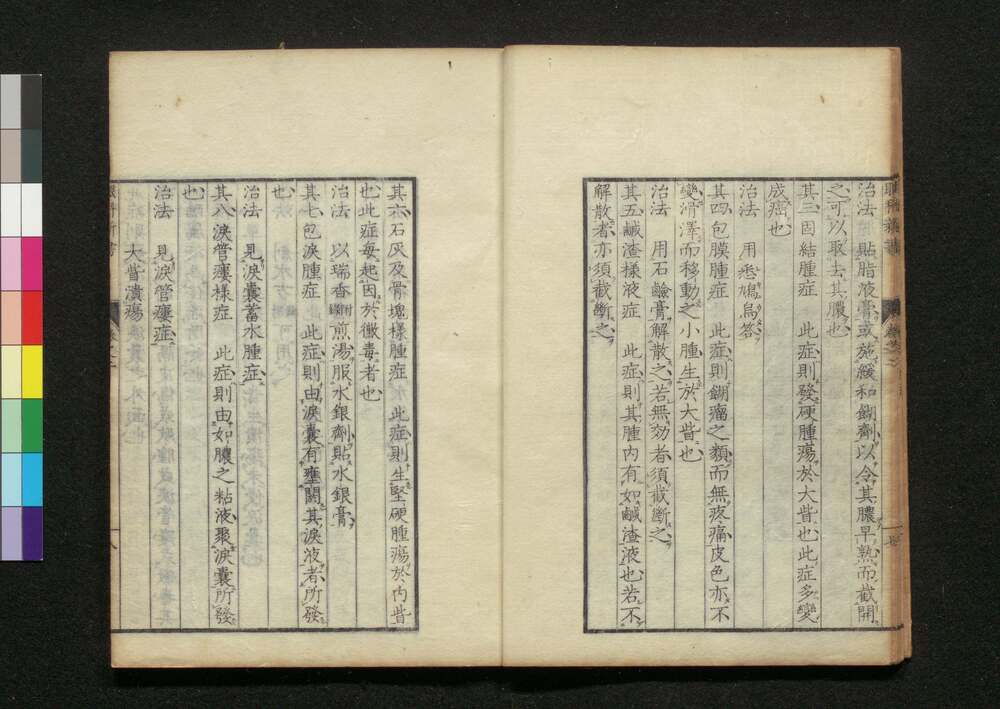 治法　貼脂液膏或施緩和餬劑以令其膿早熟而截開
之可以取去其膿也
其三固結腫症　此症則發硬腫瘍於大眥也此症多變
成癌也
治法　用悉鳩烏答
其四包膜腫症　此症則餬瘤之類而無疼痛皮色亦不
變滑澤而移動之小腫生於大眥也
治法　用石鹼膏解散之若無効者須截斷之
其五鹹渣様液症　此症則其腫内有如鹹渣液也若不
解散者亦須截斷之
其六石灰及骨塊様腫症　此症則生堅硬腫瘍於内眥
也此症毎起因於黴毒者也
治法　以瑞香煎湯服水銀劑貼水銀膏
其七包淚腫症　此症則由淚囊有壅閼其淚液者所發
也
治法　見淚囊蓄水腫症
其八淚管瘻様症　此症則由如膿之粘液聚淚囊所發
也
治法　見淚管瘻症
大眥潰瘍